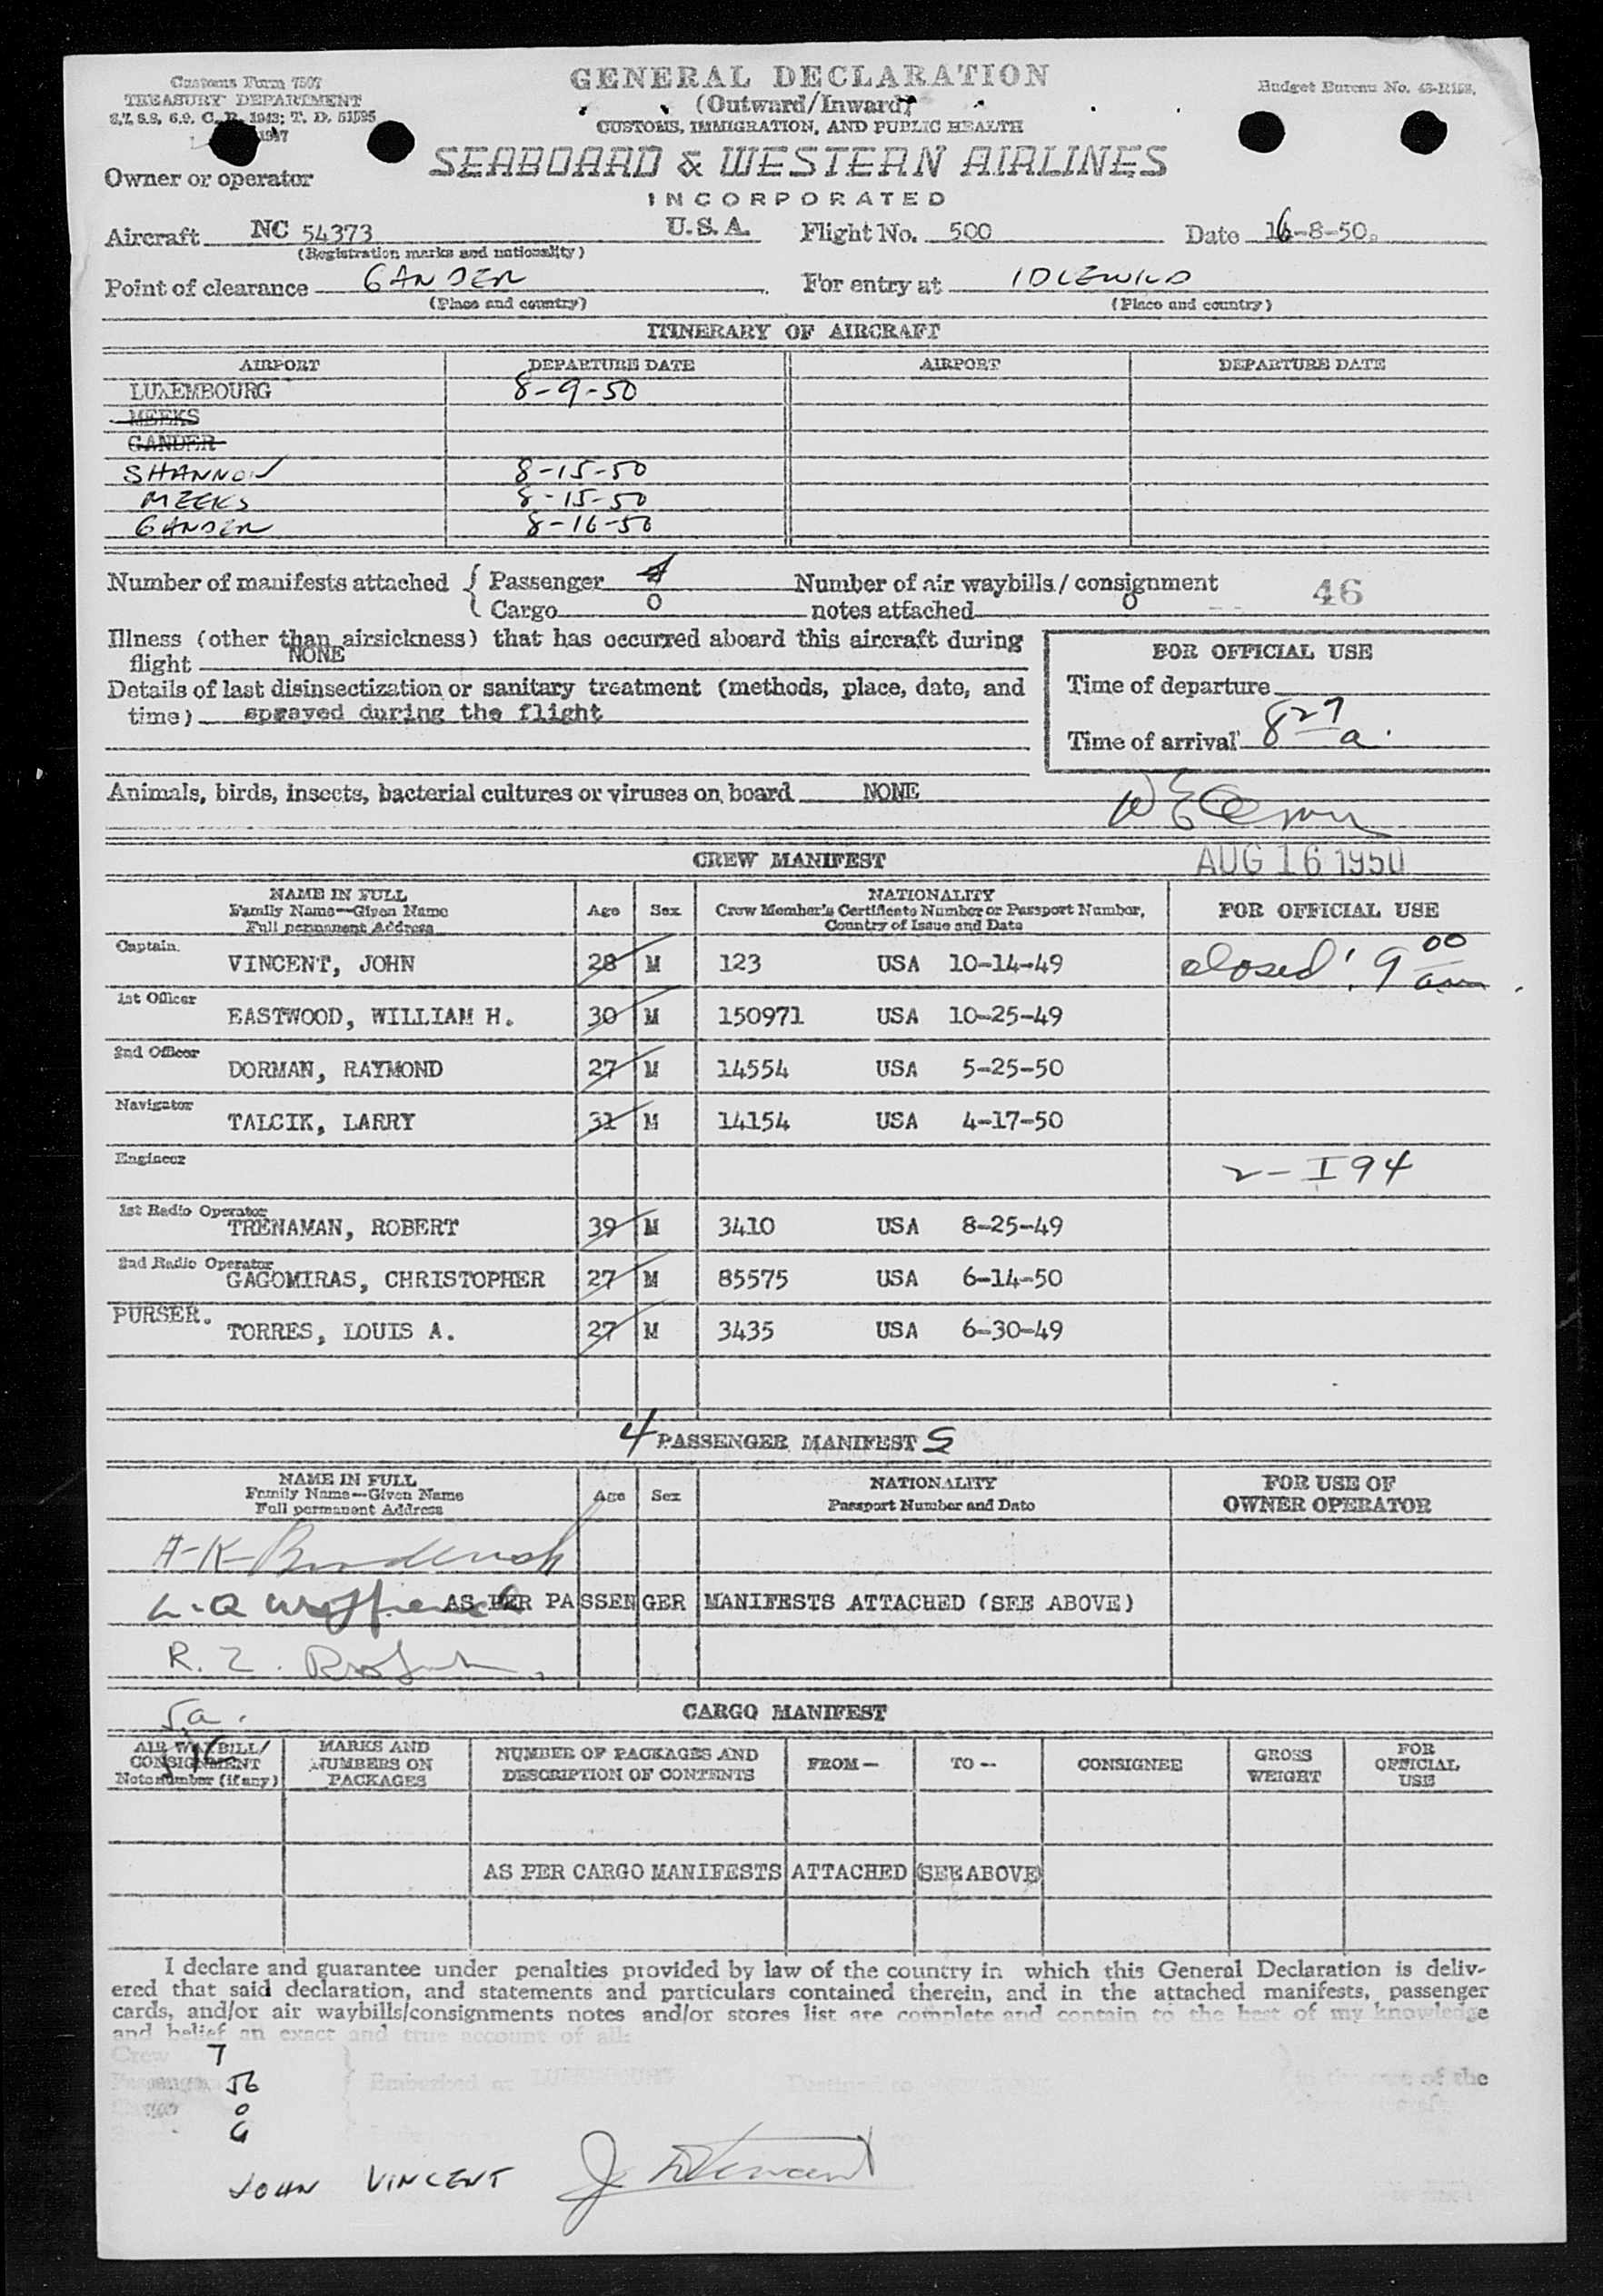 Customs Form 7507
TREASURY DEPARTMENT
GENERAL DECLARATION
(Outward/Inward)
CUSTOMS, IMMIGRATION, AND PUBLIC HEALTH
Budget Bureau No.
SEABOARD & WESTERN AIRLINES
INCORPORATED
Owner or operator
Aircraft NC 54373 U.S.A. Flight No. 500 Date 16-8-50.
(Registration marks and nationality)
Point of clearance GANDER For entry at IDLEWILD
(Place and country) (Place and country)
ITINERARY OF AIRCRAFT
AIRPORT DEPARTURE DATE AIRPORT DEPARTURE DATE
LUXEMBOURG 8-9-50
MEEKS
GANDER
SHANNON 8-15-50
MEEKS 8-15-50
GANDER 8-16-50
Number of manifests attached { Passenger 4 Number of air waybills / consignment 46
Cargo 0 notes attached 0
Illness (other than airsickness) that has occurred aboard this aircraft during
flight NONE
FOR OFFICIAL USE
Details of last disinsectization or sanitary treatment (methods, place, date, and
time) sprayed during the flight
Time of departure
Time of arrival 8 27 a.
Animals, birds, insects, bacterial cultures or viruses on board NONE
AUG 16 1950
CREW MANIFEST
NAME IN FULL
Family Name—Given Name
Full permanent Address
Age Sex
NATIONALITY
Crew Member's Certificate Number or Passport Number,
Country of Issue and Date
FOR OFFICIAL USE
Captain.
VINCENT, JOHN 28 M 123 USA 10-14-49 closed! 9 00 am
1st Officer
EASTWOOD, WILLIAM H. 30 M 150971 USA 10-25-49
2nd Officer
DORMAN, RAYMOND 27 M 14554 USA 5-25-50
Navigator
TALCIK, LARRY 31 M 14154 USA 4-17-50
Engineer
2 - I 94
1st Radio Operator
TRENAMAN, ROBERT 39 M 3410 USA 8-25-49
2nd Radio Operator
GAGOMIRAS, CHRISTOPHER 27 M 85575 USA 6-14-50
PURSER.
TORRES, LOUIS A. 27 M 3435 USA 6-30-49
4 PASSENGER MANIFEST S
NAME IN FULL
Family Name—Given Name
Full permanent Address
Age Sex
NATIONALITY
Passport Number and Date
FOR USE OF
OWNER OPERATOR
A-K-
AS PER PASSENGER MANIFESTS ATTACHED (SEE ABOVE)
R. Z.
5a.
CARGO MANIFEST
AIR WAYBILL/
CONSIGNMENT
Note number (if any)
MARKS AND
NUMBERS ON
PACKAGES
NUMBER OF PACKAGES AND
DESCRIPTION OF CONTENTS
FROM—
TO--
CONSIGNEE
GROSS
WEIGHT
FOR
OFFICIAL
USE
AS PER CARGO MANIFESTS ATTACHED (SEE ABOVE)
I declare and guarantee under penalties provided by law of the country in which this General Declaration is deliv-
ered that said declaration, and statements and particulars contained therein, and in the attached manifests, passenger
cards, and/or air waybills/consignments notes and/or stores list are complete and contain to the best of my knowledge
and belief an exact and true account of all:
Crew 7
Passengers 56 Embarked at LUXEMBOURG of the
Cargo 0
JOHN VINCENT